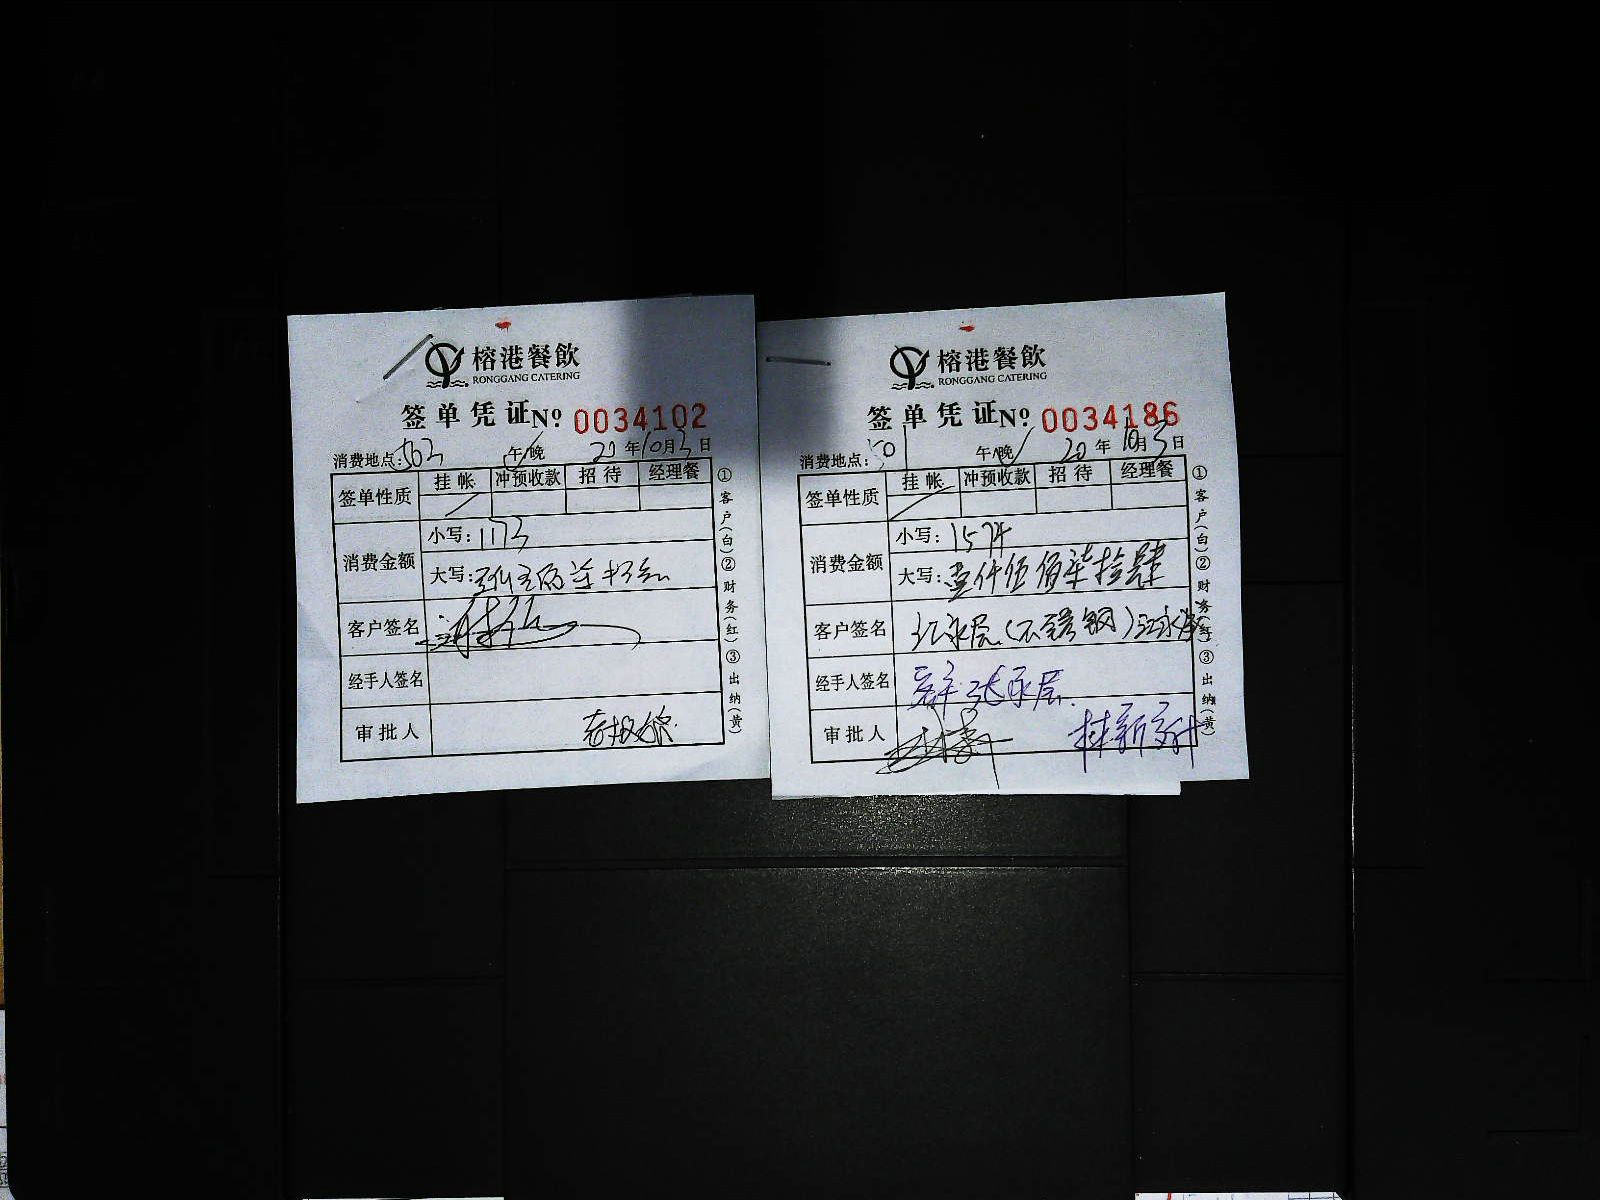 榕港餐飲
RONGGANG CATERING
签单凭证 No 0034102
消费地点: 503 午/晚 20 年 10 月 3 日
签单性质 挂帐 冲预收款 招待 经理餐
消费金额 小写: 1173
大写:
客户签名
经手人签名
审批人
①客户(白)②财务(红)③出纳(黄)
榕港餐飲
RONGGANG CATERING
签单凭证 No 0034186
消费地点: 501 午/晚 20 年 10 月 3 日
签单性质 挂帐 冲预收款 招待 经理餐
消费金额 小写: 1574
大写: 壹仟伍佰柒拾肆
客户签名 江永层(不锈钢)江永层
经手人签名
审批人 林新
①客户(白)②财务(红)③出纳(黄)